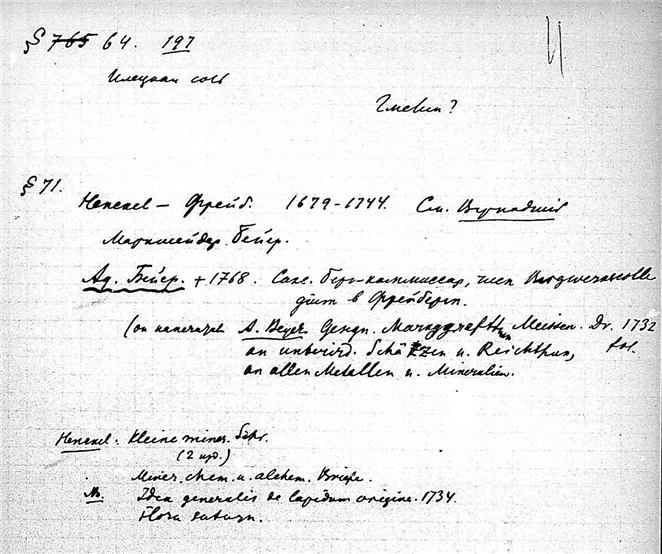 § 765 64. 197
Илецкая соль
Гмелин?
§ 71.
Henckel — Фрейб. 1679-1744. См. Вернадский
Маркшейдер Бейер.
Ад. Бейер. + 1768. Сакс. берг-комиссар, член Bergwerkscolle
gium в Фрейберге.
(он напечатал A. Beyer. Марggrafth Meissen. Dr. 1732
an unterird. Schätzen u. Reichthum, fol.
an allen Metallen u. Mineralien.
Henckel. Kleine miner. Schr.
(2 изд.)
Miner. chem. u. alchem. Briefe.
Idea generalis de lapidum origine. 1734.
Flora saturn.